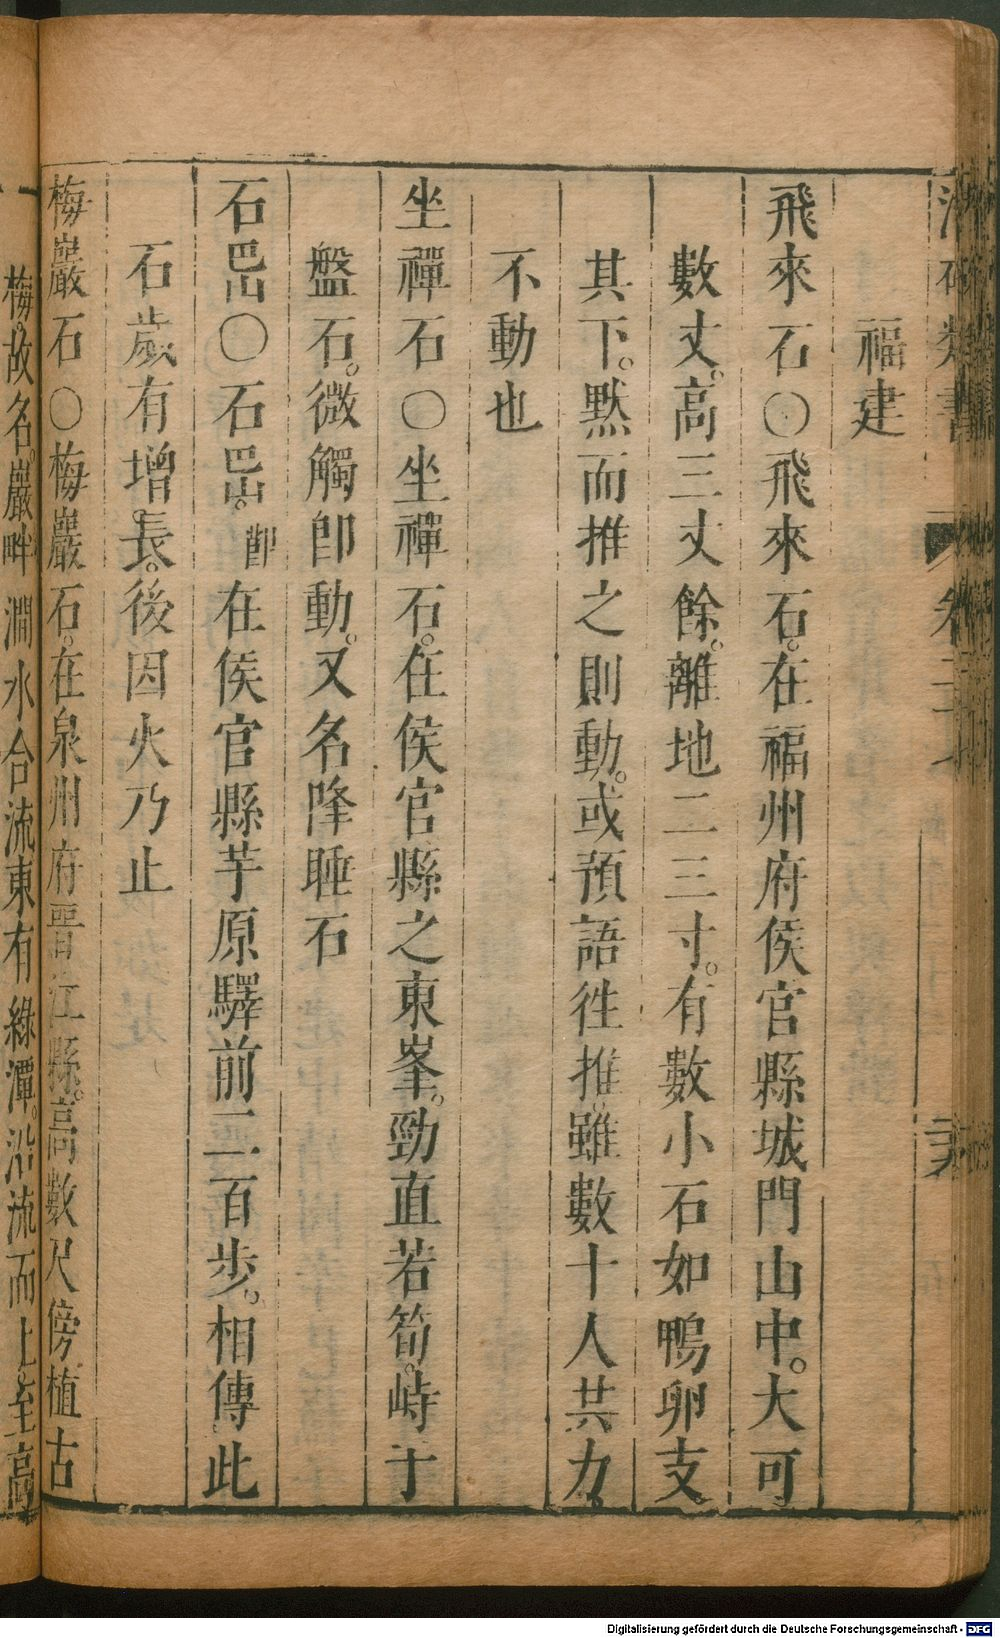 福建
飛來石〇飛來石。在福州府侯官縣城門山中。大可
數丈。高三丈餘。離地二三寸。有數小石如鴨卵支
其下。默而推之則動。或預語徃推。雖數十人共力。
不動也
坐禪石〇坐禪石。在侯官縣之東峯。勁直若筍。峙于
盤石。微觸卽動。又名降睡石
石𡶨〇石𡶨。在侯官縣芋原驛前二百步。相傳此
石歲有增長。後因火乃止
梅巖石〇梅巖石。在泉州府晉江縣。高數尺傍植古
梅。故名。巖畔澗水合流東有綠潭。沿流而上。至高
Digitalisierung gefördert durch die Deutsche Forschungsgemeinschaft - DFG